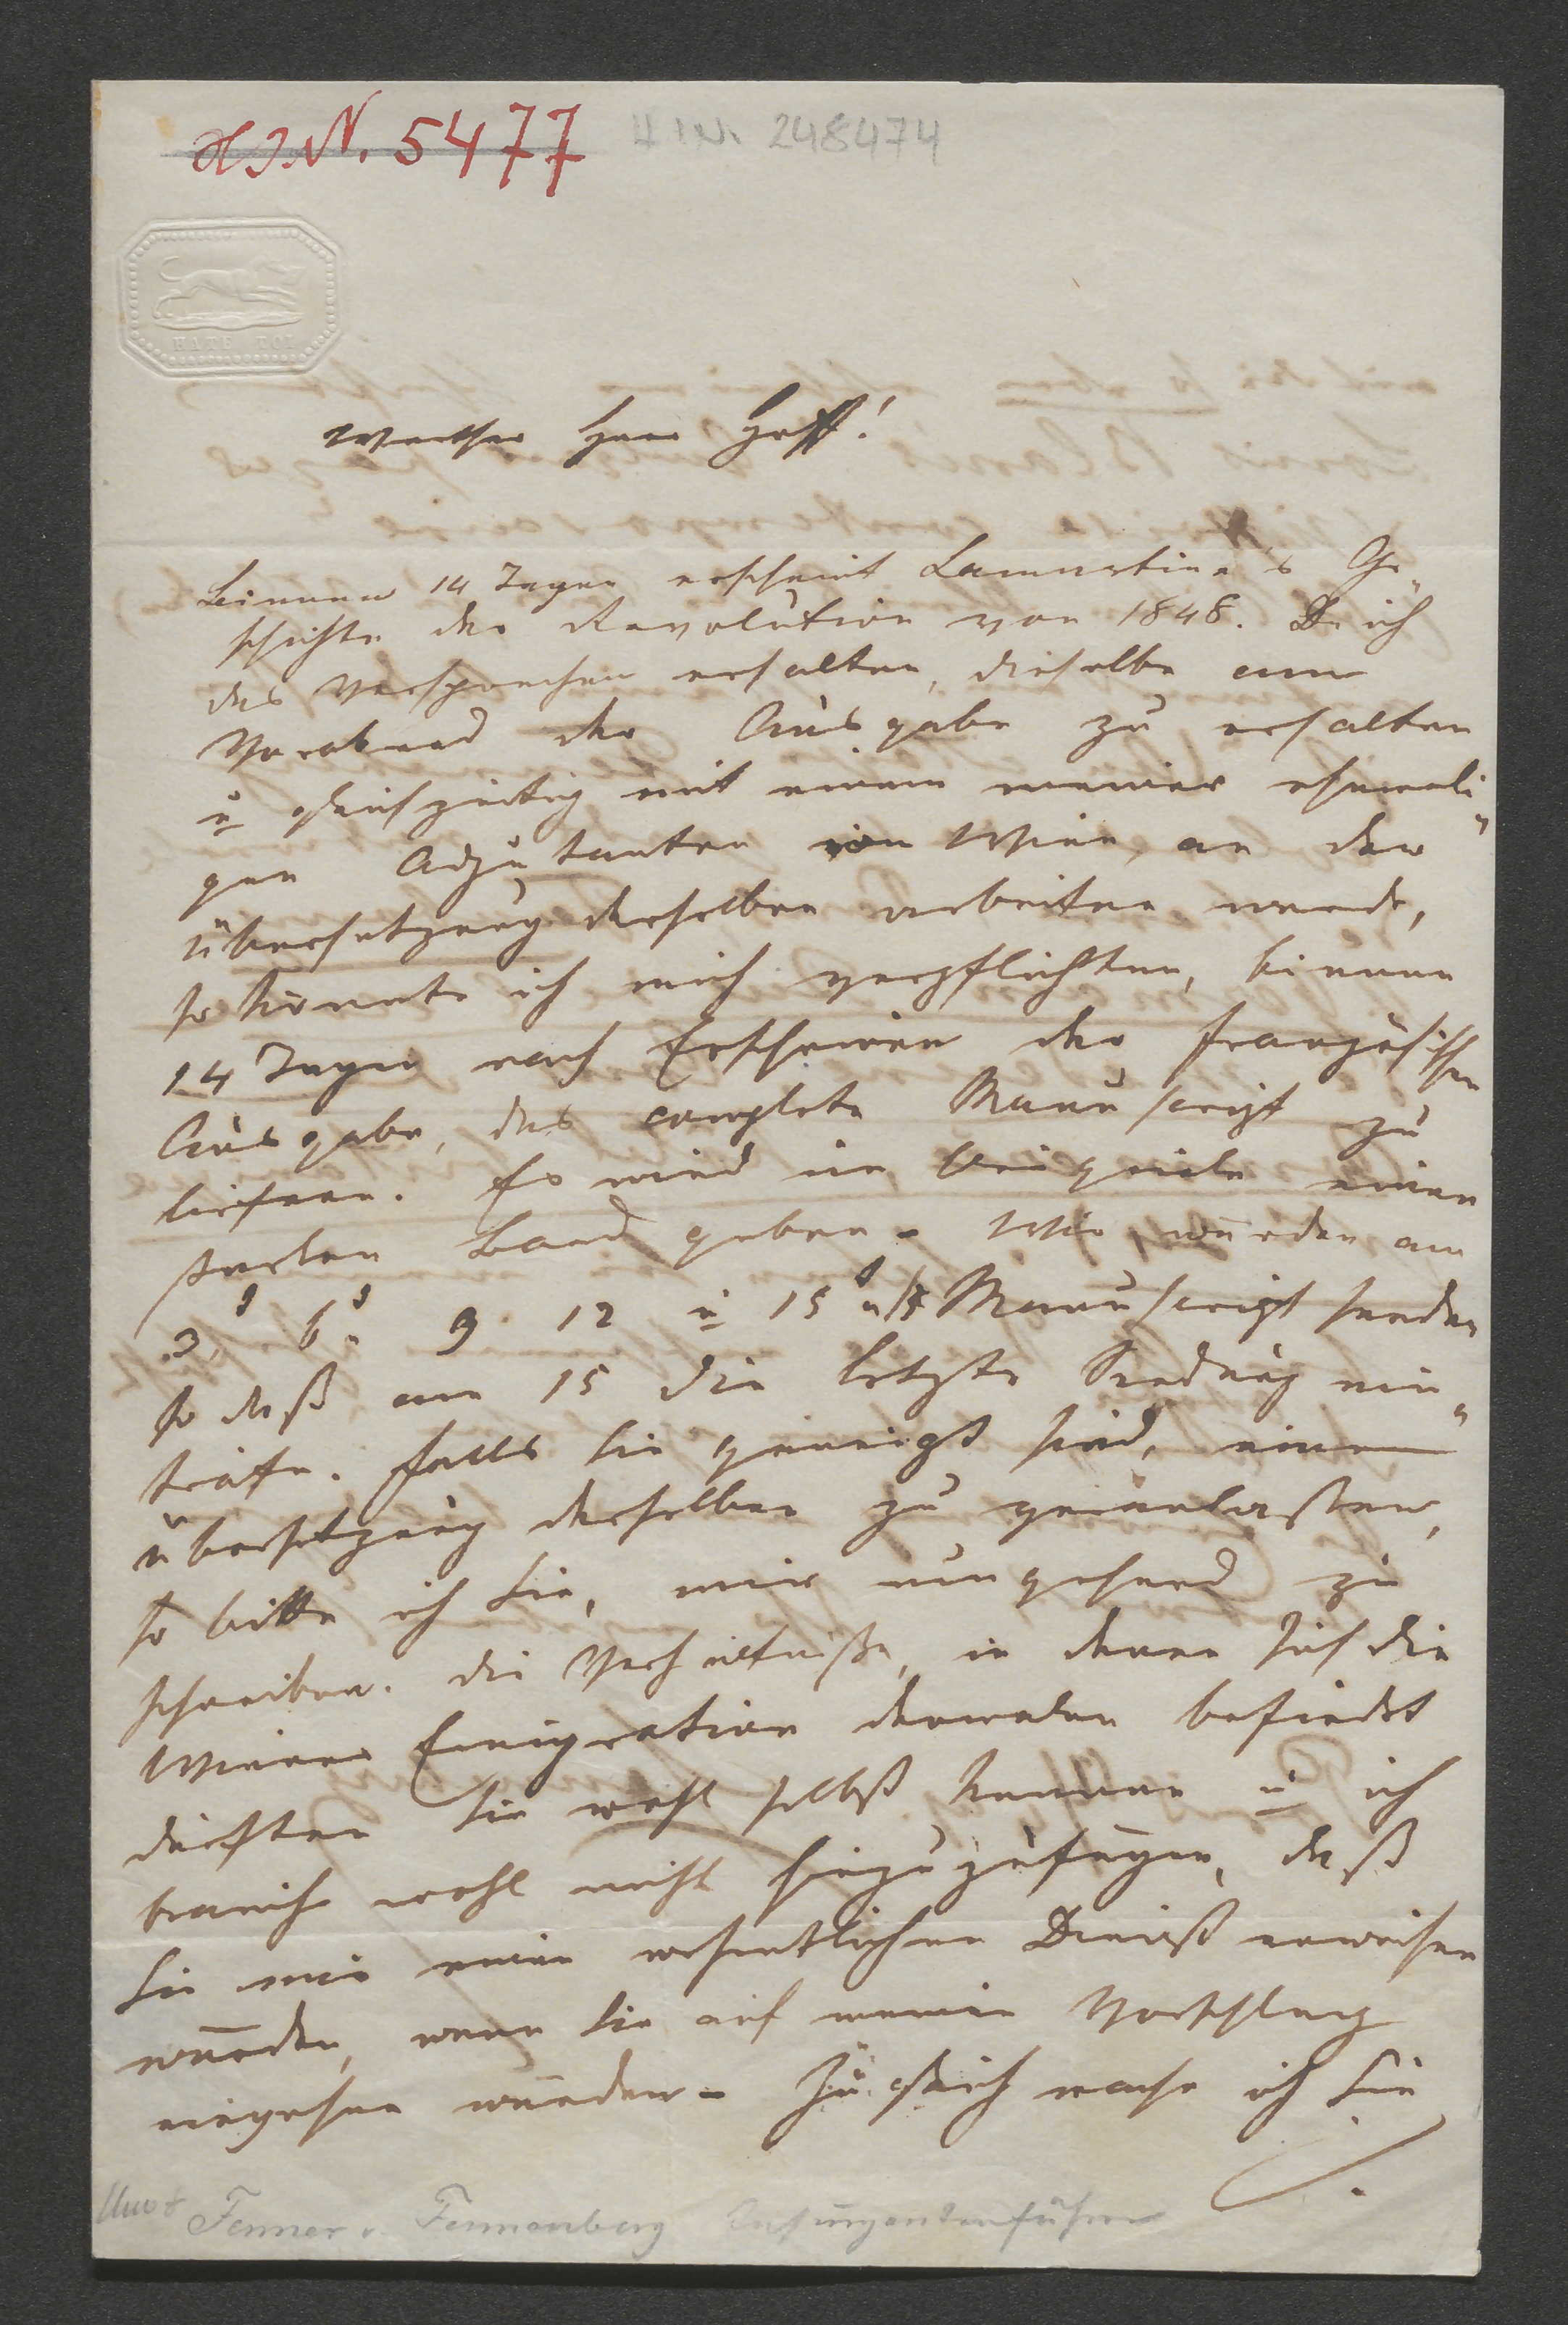 H.I.N. 5477 H.I.N. 248474
HATE TOI
Werther Herr Hoff!
Binnen 14 Tagen erscheint Lamartine's Ge„
schichte der Revolution von 1848. Da ich
das Versprechen erhalten, dieselbe am
Vorabend der Ausgabe zu erhalten
u gleichzeitig mit einem meiner ehemali„
gen Adjutanten von Wien, an der
Übersetzung derselben arbeiten werde,
so könnte ich mich verpflichten, binnen
14 Tagen nach Erscheinen der französischen
Ausgabe, das complete Manuscript zu
liefern. Es wird im Original einen
starken Band geben – Wir würden am
3 6 9 12 u 15 Manuscript senden
so daß am 15 die letzte Sendung ein„
träfe. Falls Sie geneigt sind, eine
Übersetzung derselben zu veranlassen,
so bitte ich Sie, mir umgehend zu
schreiben. Die Verhältniße, in denen sich die
Wiener Emigration dermalen befindet
dürften Sie wohl selbst kennen u ich
brauche wohl nicht hinzuzufügen, daß
Sie mir einen wesentlichen Dienst erweisen
würden, wenn Sie auf meinen Vorschlag
eingehen würden – Zugleich mache ich Sie
Fenner v. Fennenberg Insurgentenführer